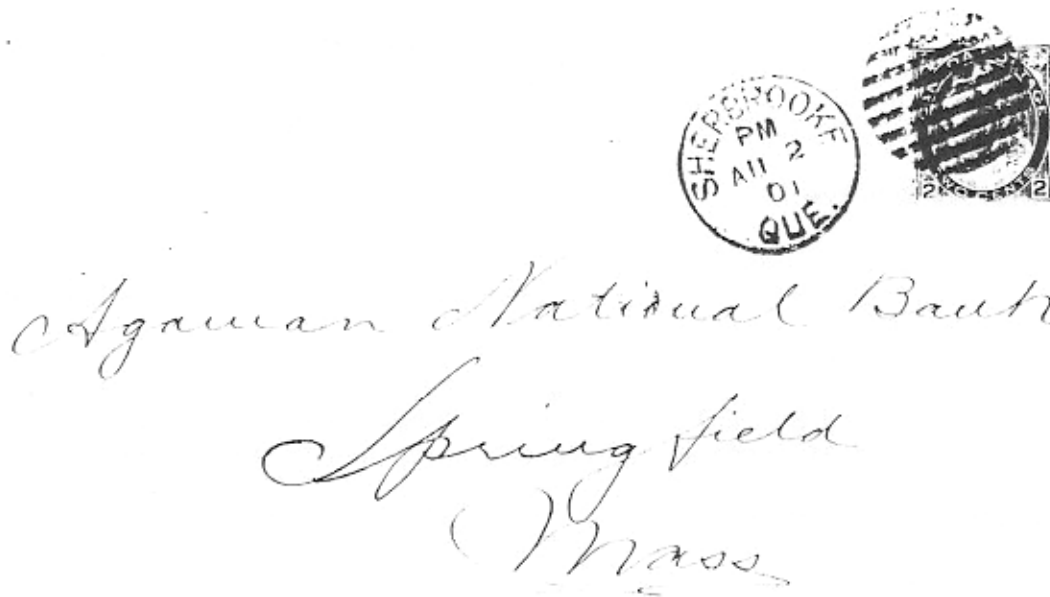 SHERBROOKE
PM
AU 2
01
QUE.
2 TWO CENTS 2
Agawam National Bank
Springfield
Mass